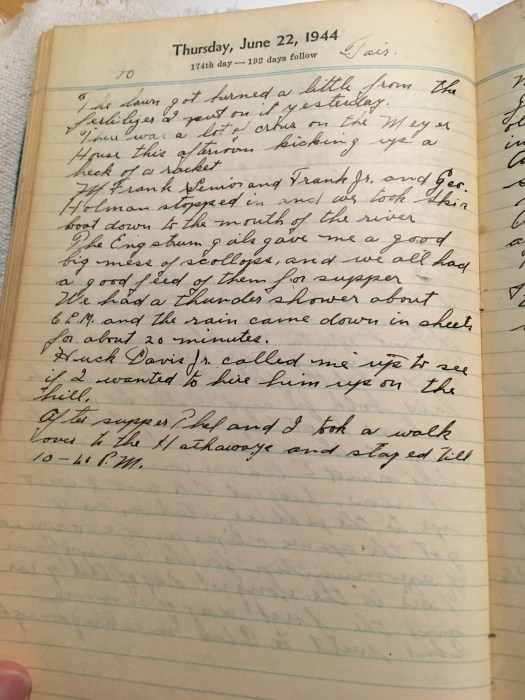 Thursday, June 22, 1944
174th day — 192 days follow
Fair.
70
The lawn got burned a little from the
fertilizer I put on it yesterday.
There was a lot of crows on the Meyer
House this afternoon kicking up a
heck of a racket
Frank Senior and Frank Jr. and Geo.
Holman stopped in and we took their
boat down to the mouth of the river
The Engstrum gals gave me a good
big mess of scollops, and we all had
a good feed of them for supper
We had a thunder shower about
6 P.M. and the rain came down in sheets
for about 20 minutes.
Huck Davis Jr. called me up to see
if I wanted to hire him up on the
hill.
After supper Phel and I took a walk
over to the Hathaways and stayed till
10-40 P.M.